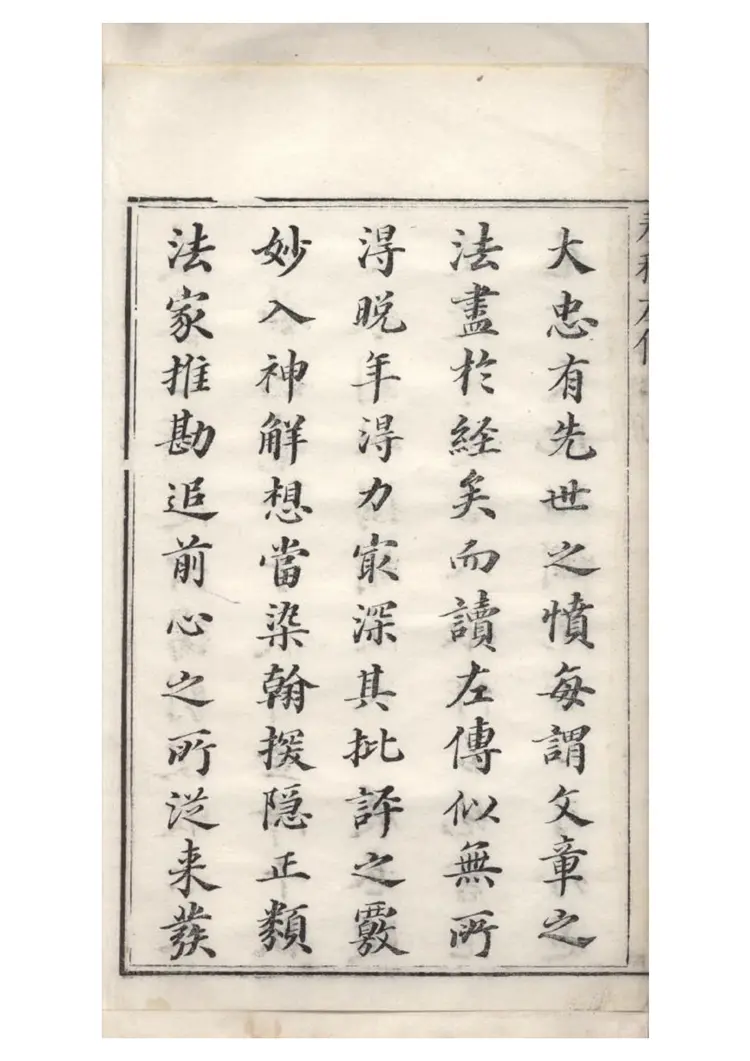 大忠有先世之憤每謂文章之
法盡於經矣而讀左傳似無所
得晩年得力㝡深其批評之覈
妙入神解想當染翰探隠正類
法家推勘追前心之所從来發